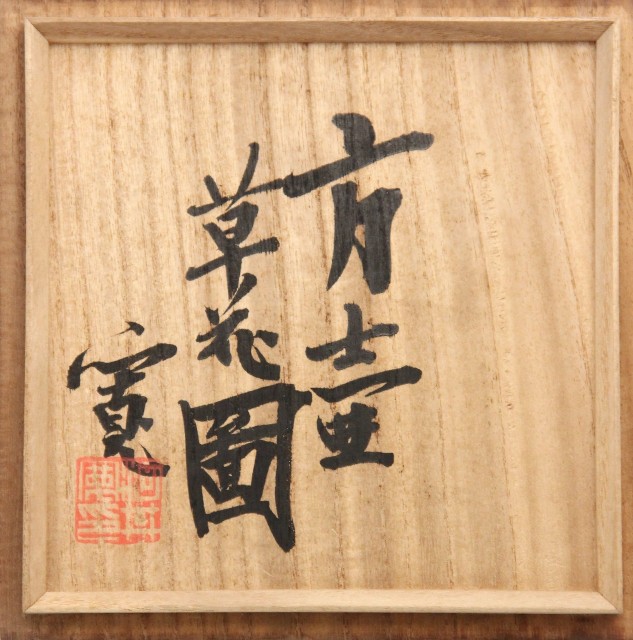 方壺
草花圖
寛